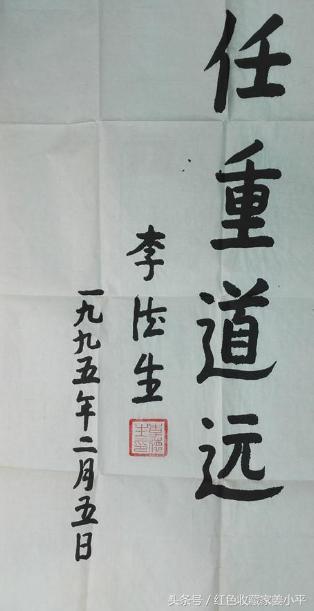 任重道远
李德生
一九九五年二月五日
李德生印
头条号／红色收藏家姜小平